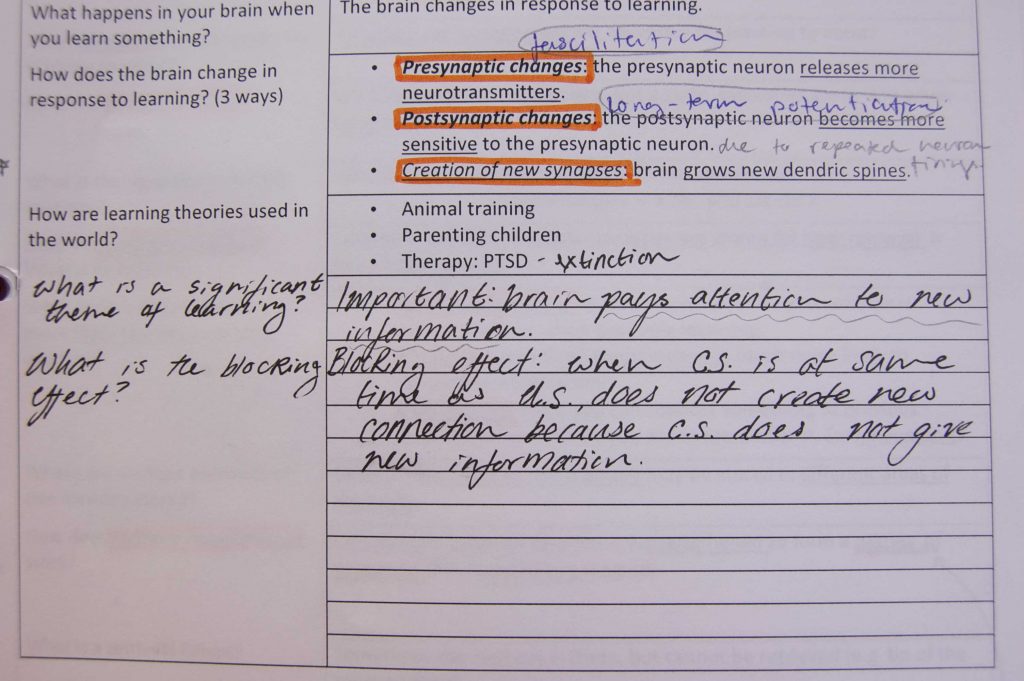 What happens in your brain when
you learn something?
The brain changes in response to learning.
How does the brain change in
response to learning? (3 ways)
fascilitation
• Presynaptic changes: the presynaptic neuron releases more
neurotransmitters.
long-term potentiation
• Postsynaptic changes: the postsynaptic neuron becomes more
sensitive to the presynaptic neuron. due to repeated neuron
firings
• Creation of new synapses: brain grows new dendric spines.
How are learning theories used in
the world?
• Animal training
• Parenting children
• Therapy: PTSD - extinction
What is a significant
theme of learning?
Important: brain pays attention to new
information.
What is the blocking
effect?
Blocking effect: when C.S. is at same
time as U.S., does not create new
connection because C.S. does not give
new information.